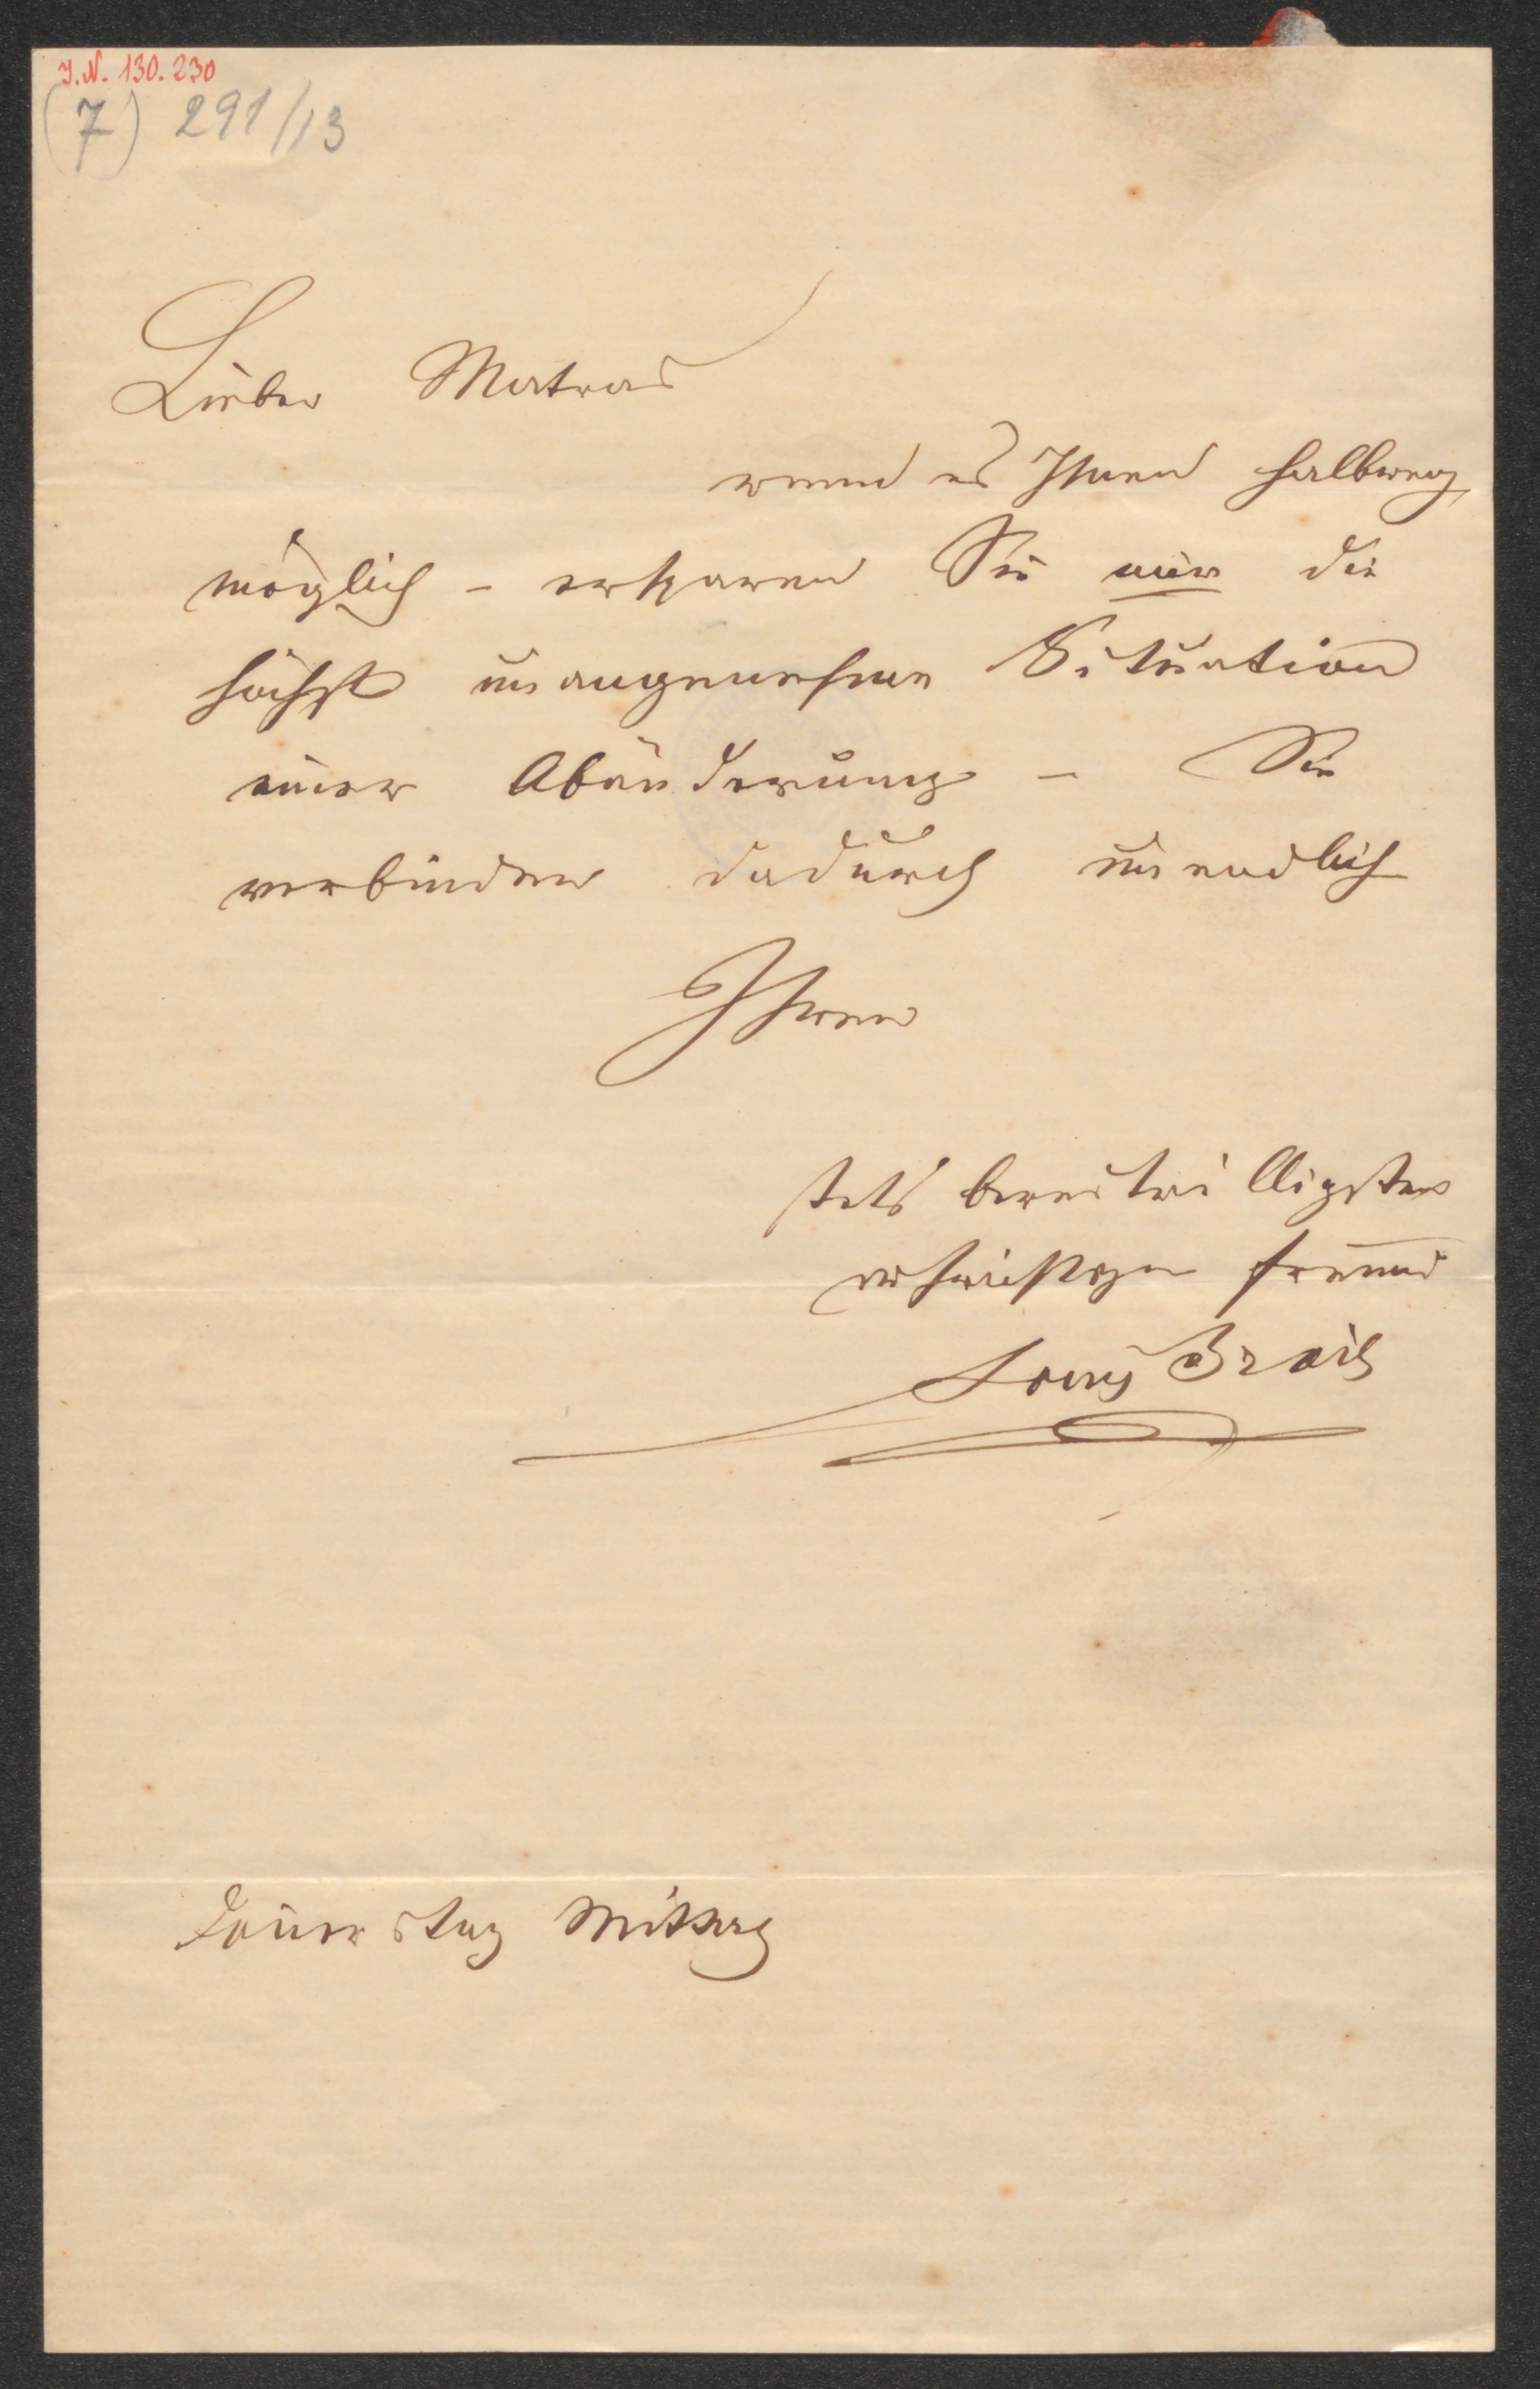 J.N. 130.230
(7) 291/13
Lieber Matras
wenn es Ihnen halbweg
möglich – ersparen Sie mir die
höchst unangenehme Situation
einer Abänderung – Sie
verbinden dadurch unendlich
Ihren
stets bereitwilligsten
Freund
Donerstag Mittag